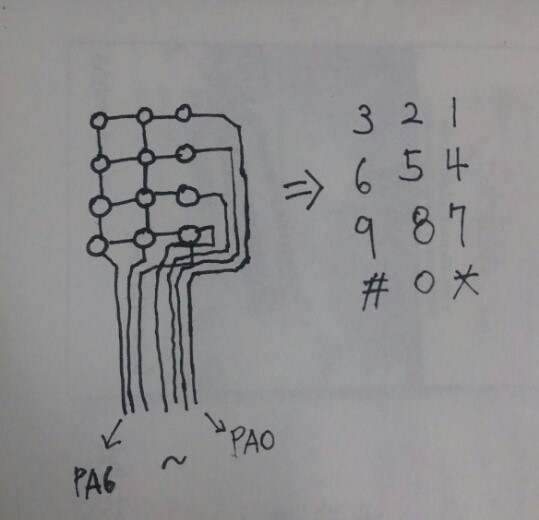 3 2 1
6 5 4
9 8 7
# 0 *
PA6 ~ PA0